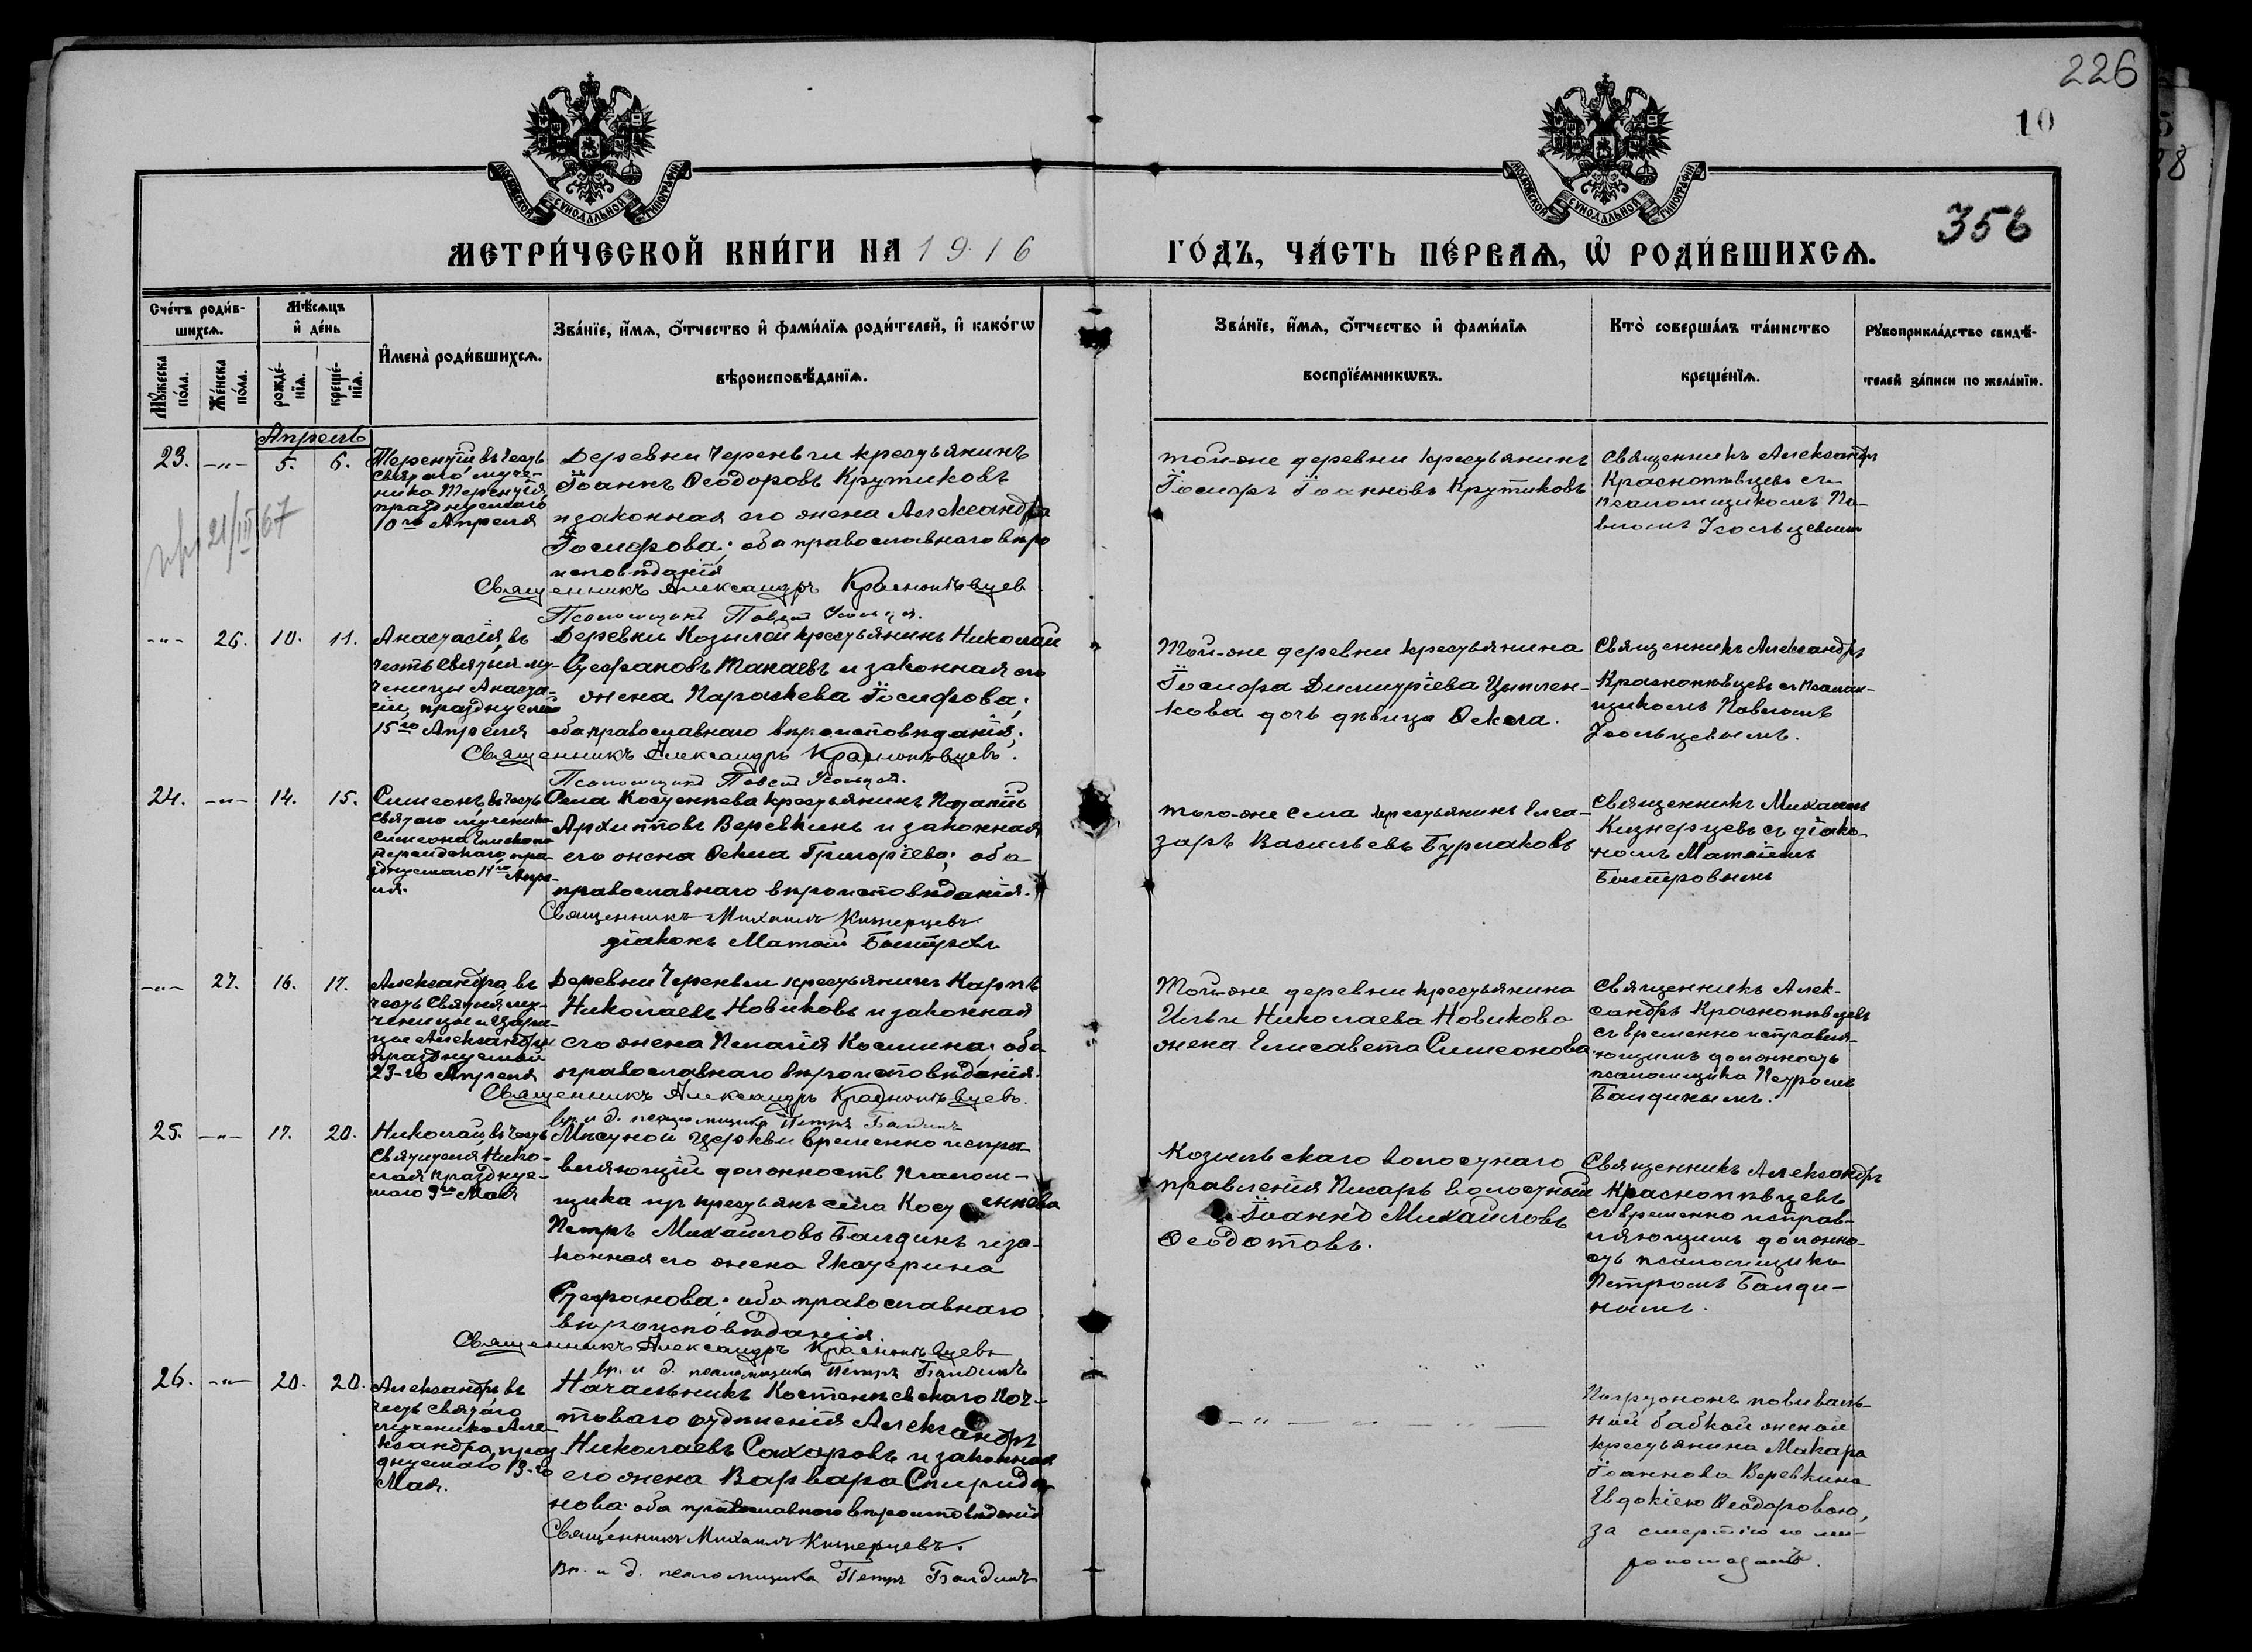 226
10
356
МОСКОВСКОЙ СУНОДАЛЬНОЙ ТИПОГРАФІИ
МОСКОВСКОЙ СУНОДАЛЬНОЙ ТИПОГРАФІИ
МЕТРИ́ЧЕСКОЙ КНИ́ГИ НА 1916
ГО́ДЪ, ЧА́СТЬ ПЕ́РВАѦ, Ѡ҆ РОДИ́ВШИХСѦ.
Сче́тъ роди́в-
шихсѧ.
Мꙋ́жеска по́ла.
Же́нска по́ла.
Мѣ́сѧцъ
и҆ де́нь
рожде́-
нїѧ.
креще́-
нїѧ.
И҆мена̀ роди́вшихсѧ.
Зва́нїе, и҆́мѧ, ѻ҆́тчество и҆ фами́лїѧ роди́телей, и҆ како́гѡ
вѣроисповѣ́данїѧ.
Зва́нїе, и҆́мѧ, ѻ҆́тчество и҆ фами́лїѧ
воспрїе́мникѡвъ.
Кто̀ соверша́лъ та́инство
креще́нїѧ.
Рꙋкоприкла́дство свидѣ́-
телей за́писи по жела́нїю.
Апрель
23. -"- 5. 6.
Терентій въ честь
святаго муче-
ника Терентія,
празднуемаго
10го Апреля
21/III 67
Деревни Череньги крестьянинъ
Іоаннъ Ѳеодоровъ Крутиковъ
и законная его жена Александра
Іосифова; оба православнаго вѣро
исповѣданія
Священникъ Александръ Краснопѣвцев
Псаломщикъ Павелъ Усольцев.
той-же деревни крестьянинъ
Іосифъ Іоанновъ Крутиковъ
Священникъ Александръ
Краснопѣвцевъ съ
псаломщикомъ Па-
вломъ Усольцевым
-"- 26. 10. 11.
Анастасія, въ
честь Святыя му-
ченицы Анаста-
сіи, празднуемой
15го Апреля
Деревни Козылей крестьянинъ Николай
Стефановъ Макаевъ и законная его
жена Параскева Іосифова;
оба православнаго вѣроисповѣданія;
Священникъ Александръ Краснопѣвцевъ.
Псаломщикъ Павелъ Усольцев.
Той-же деревни крестьянина
Іосифа Димитріева Цыплен-
кова дочь дѣвица Ѳекла.
Священникъ Александръ
Краснопѣвцевъ съ псалом-
щикомъ Павломъ
Усольцевымъ.
24. -"- 14. 15.
Симеонъ, въ честь
Святаго мученика
Симеона Епископа
Персидскаго, пра-
зднуемаго 17го Апре-
ля.
Села Костенѣева крестьянинъ Потапій
Архипповъ Веревкинъ и законная
его жена Ѳекла Григоріева; оба
православнаго вѣроисповѣданія.
Священникъ Михаилъ Кизнерцевъ
діаконъ Матѳій Быстровъ
того-же села крестьянинъ Елеа-
заръ Васильевъ Бурлаковъ
Священникъ Михаилъ
Кизнерцевъ съ діако-
номъ Матѳіемъ
Быстровымъ
-"- 27. 16. 17.
Александра, въ
честь Святыя му-
ченицы и Цари-
цы Александры,
празднуемой
23-го Апреля
Деревни Череньги крестьянинъ Карпъ
Николаевъ Новиковъ и законная
его жена Пелагія Космина; оба
православнаго вѣроисповѣданія.
Священникъ Александръ Краснопѣвцевъ.
вр. и д. псаломщика Петръ Балдинъ
Той-же деревни крестьянина
Ильи Николаева Новикова
жена Елисавета Симеонова
Священникъ Алек-
сандръ Краснопѣвцевъ
съ временно исправля-
ющимъ должность
псаломщика Петромъ
Балдинымъ.
25. -"- 17. 20.
Николай, въ честь
Святителя Нико-
лая празднуе-
маго 9го Мая
Мѣстной церкви временно испра-
вляющій должность псалом-
щика изъ крестьянъ села Костенѣева
Петръ Михайловъ Балдинъ и за-
конная его жена Екатерина
Стефанова; оба православнаго
вѣроисповѣданія.
Священникъ Александръ Краснопѣвцевъ
вр. и д. псаломщика Петръ Балдинъ
Козыльскаго волостнаго
правленія Писарь волостный
Іоаннъ Михайловъ
Ѳеодотовъ.
Священникъ Александръ
Краснопѣвцевъ
съ временно исправ-
ляющимъ должно-
сть псаломщика
Петромъ Балди-
нымъ.
26. -"- 20. 20.
Александръ, въ
честь Святаго
мученика Але-
ксандра, праз
днуемаго 13-го
Мая.
Начальникъ Костенѣевскаго Поч-
товаго отдѣленія Александръ
Николаевъ Сахаровъ и законная
его жена Варвара Спиридо
нова; оба православнаго вѣроисповѣданія
Священникъ Михаилъ Кизнерцевъ.
Вр. и д. псаломщика Петръ Балдинъ
- " - " - " -
Погруженъ повиваль-
ной бабкой женой
крестьянина Макара
Іоаннова Веревкина
Евдокіею Ѳеодоровою,
за смертію не ми-
ропомазанъ.